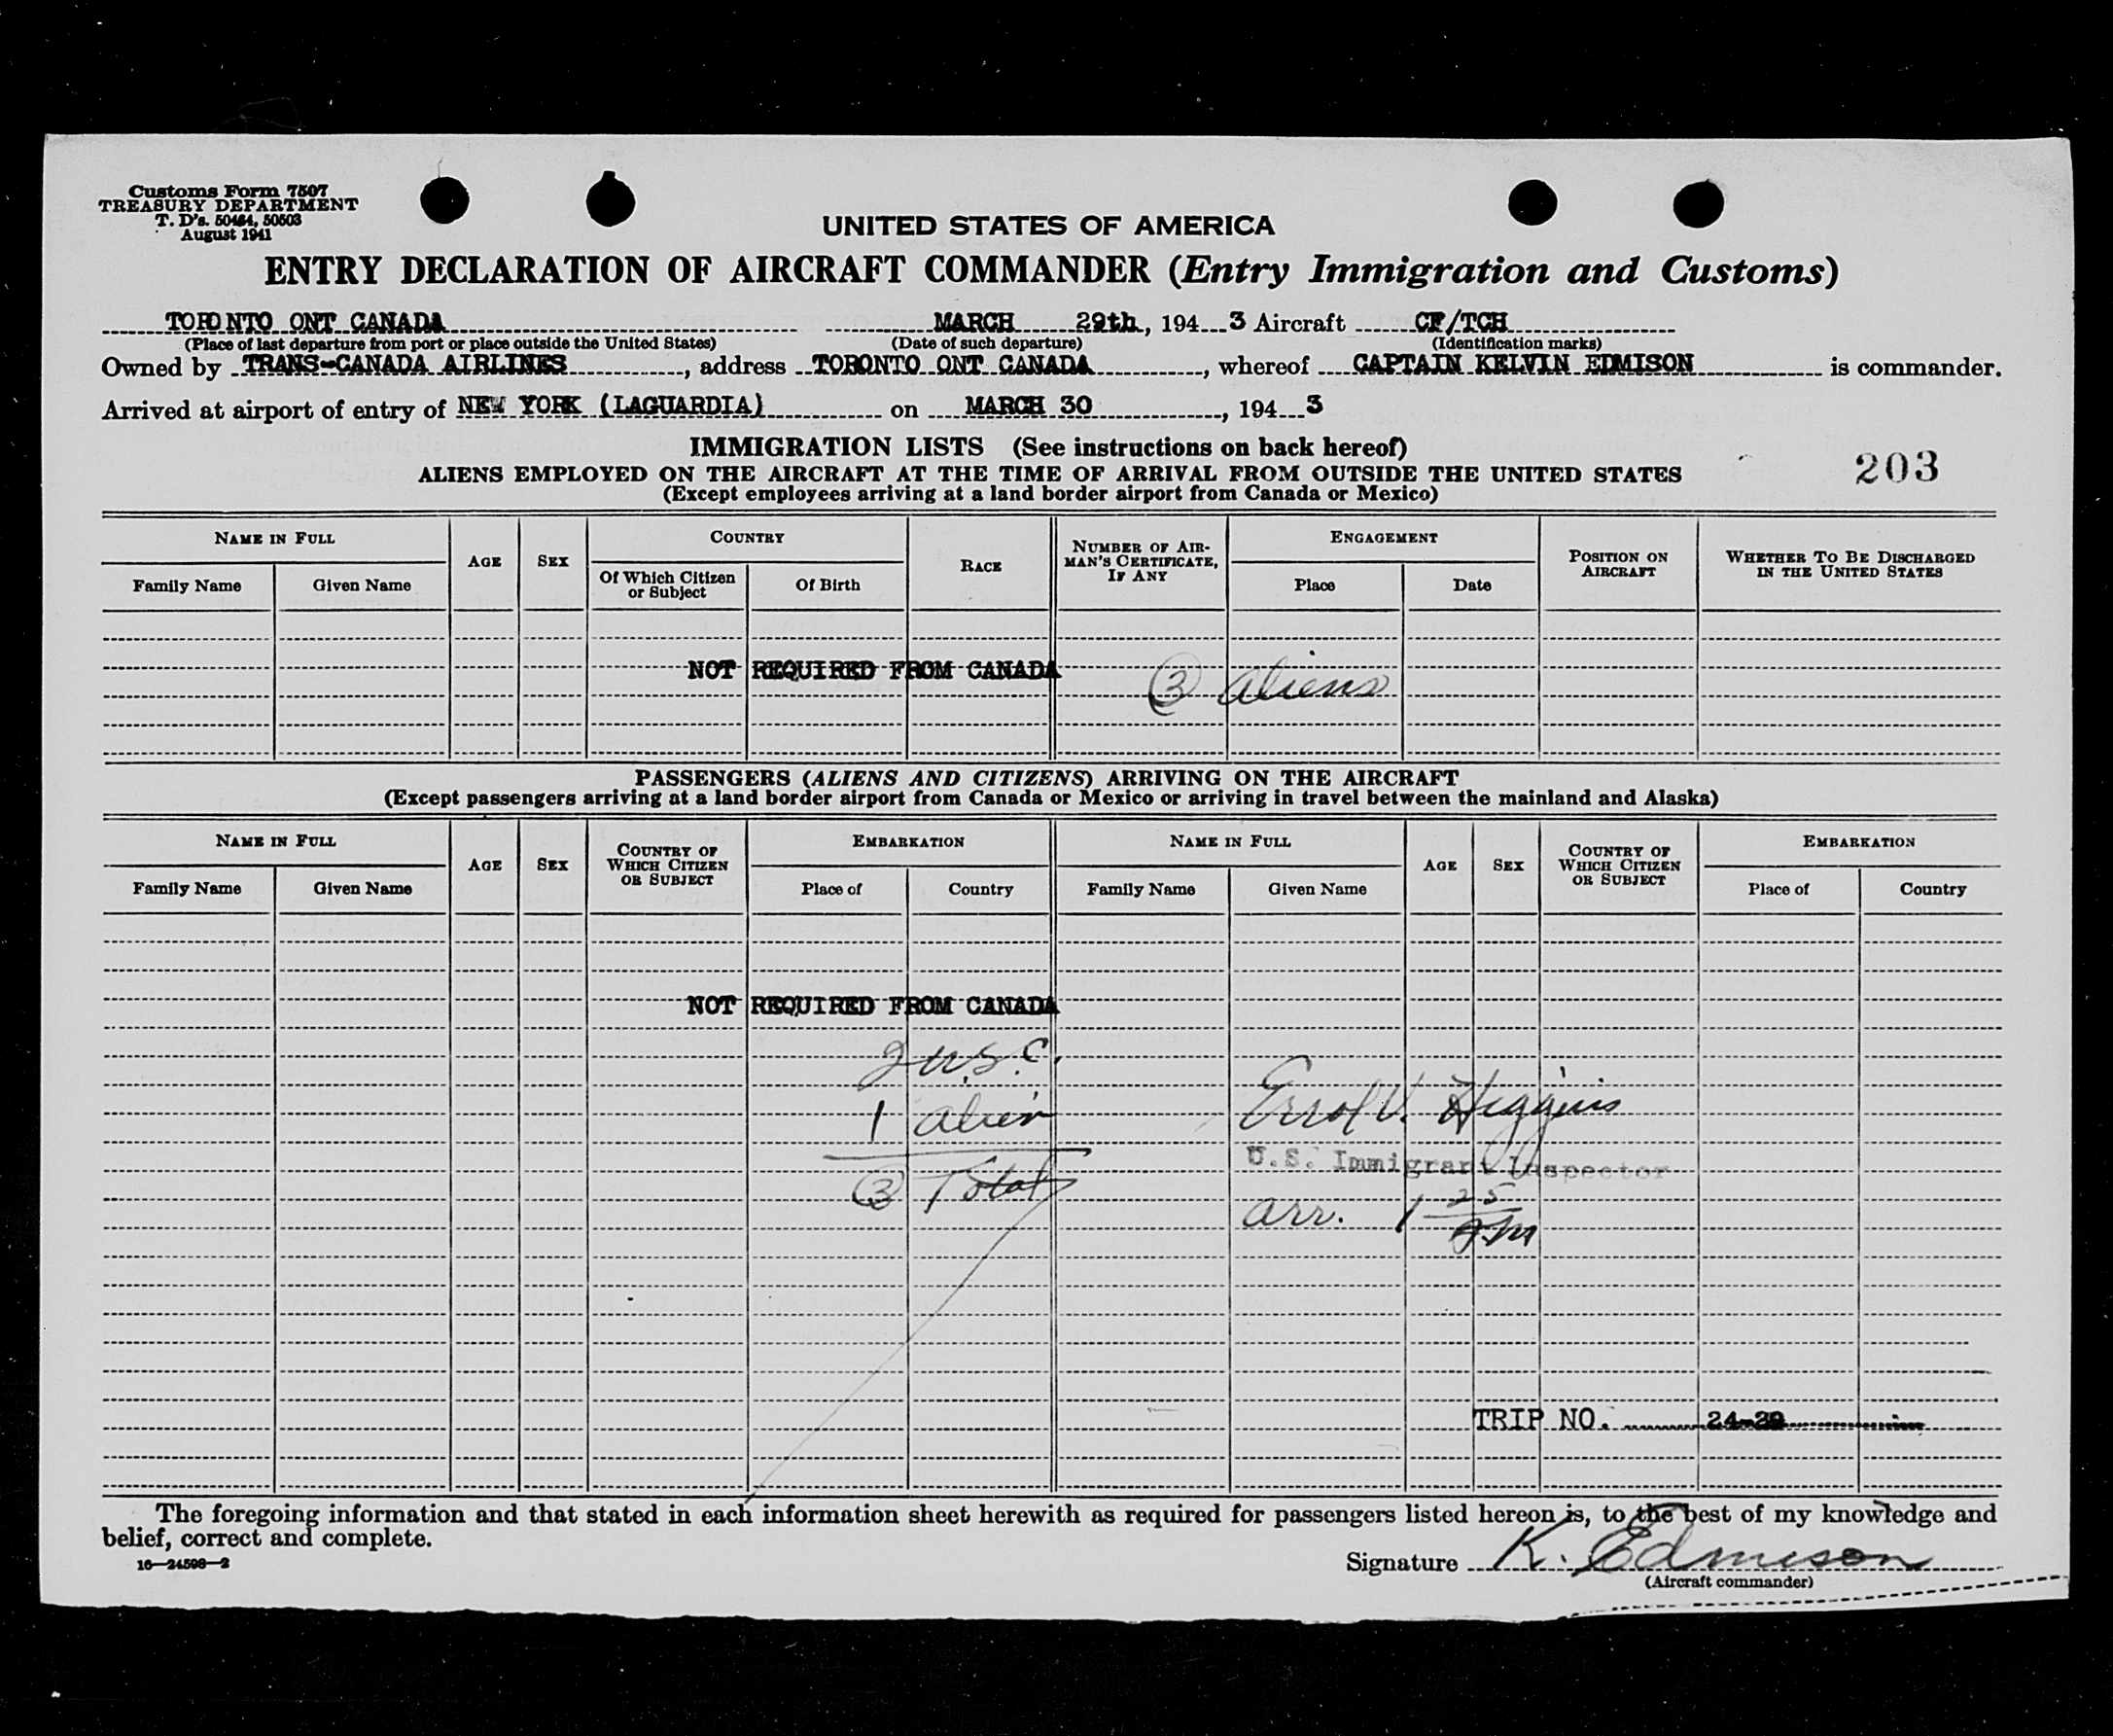 Customs Form 7507
TREASURY DEPARTMENT
T. D's. 50464, 50503
August 1941
UNITED STATES OF AMERICA
ENTRY DECLARATION OF AIRCRAFT COMMANDER (Entry Immigration and Customs)
TORONTO ONT CANADA MARCH 29th, 1943 Aircraft CF/TCH
(Place of last departure from port or place outside the United States) (Date of such departure) (Identification marks)
Owned by TRANS-CANADA AIRLINES, address TORONTO ONT CANADA, whereof CAPTAIN KELVIN EDMISON is commander.
Arrived at airport of entry of NEW YORK (LAGUARDIA) on MARCH 30, 1943
IMMIGRATION LISTS (See instructions on back hereof)
203
ALIENS EMPLOYED ON THE AIRCRAFT AT THE TIME OF ARRIVAL FROM OUTSIDE THE UNITED STATES
(Except employees arriving at a land border airport from Canada or Mexico)
NAME IN FULL AGE SEX COUNTRY RACE NUMBER OF AIRMAN'S CERTIFICATE, IF ANY ENGAGEMENT POSITION ON AIRCRAFT WHETHER TO BE DISCHARGED IN THE UNITED STATES
Family Name Given Name Of Which Citizen or Subject Of Birth Place Date
NOT REQUIRED FROM CANADA
3 aliens
PASSENGERS (ALIENS AND CITIZENS) ARRIVING ON THE AIRCRAFT
(Except passengers arriving at a land border airport from Canada or Mexico or arriving in travel between the mainland and Alaska)
NAME IN FULL AGE SEX COUNTRY OF WHICH CITIZEN OR SUBJECT EMBARKATION NAME IN FULL AGE SEX COUNTRY OF WHICH CITIZEN OR SUBJECT EMBARKATION
Family Name Given Name Place of Country Family Name Given Name Place of Country
NOT REQUIRED FROM CANADA
2 U.S.C.
1 alien
Errol V. Higgins
U.S. Immigrant Inspector
3 Total
arr. 1 25
TRIP NO. 24-29
The foregoing information and that stated in each information sheet herewith as required for passengers listed hereon is, to the best of my knowledge and
belief, correct and complete.
16—24598-2
Signature K. Edmison
(Aircraft commander)